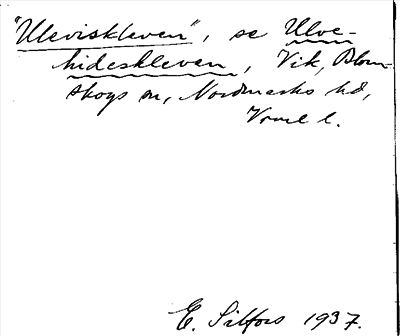 "Uleviskleven", se Ulve-
hideskleven, Vik, Blom-
skogs sn, Nordmarks hd,
Vrml l.
E. Silfors 1937.